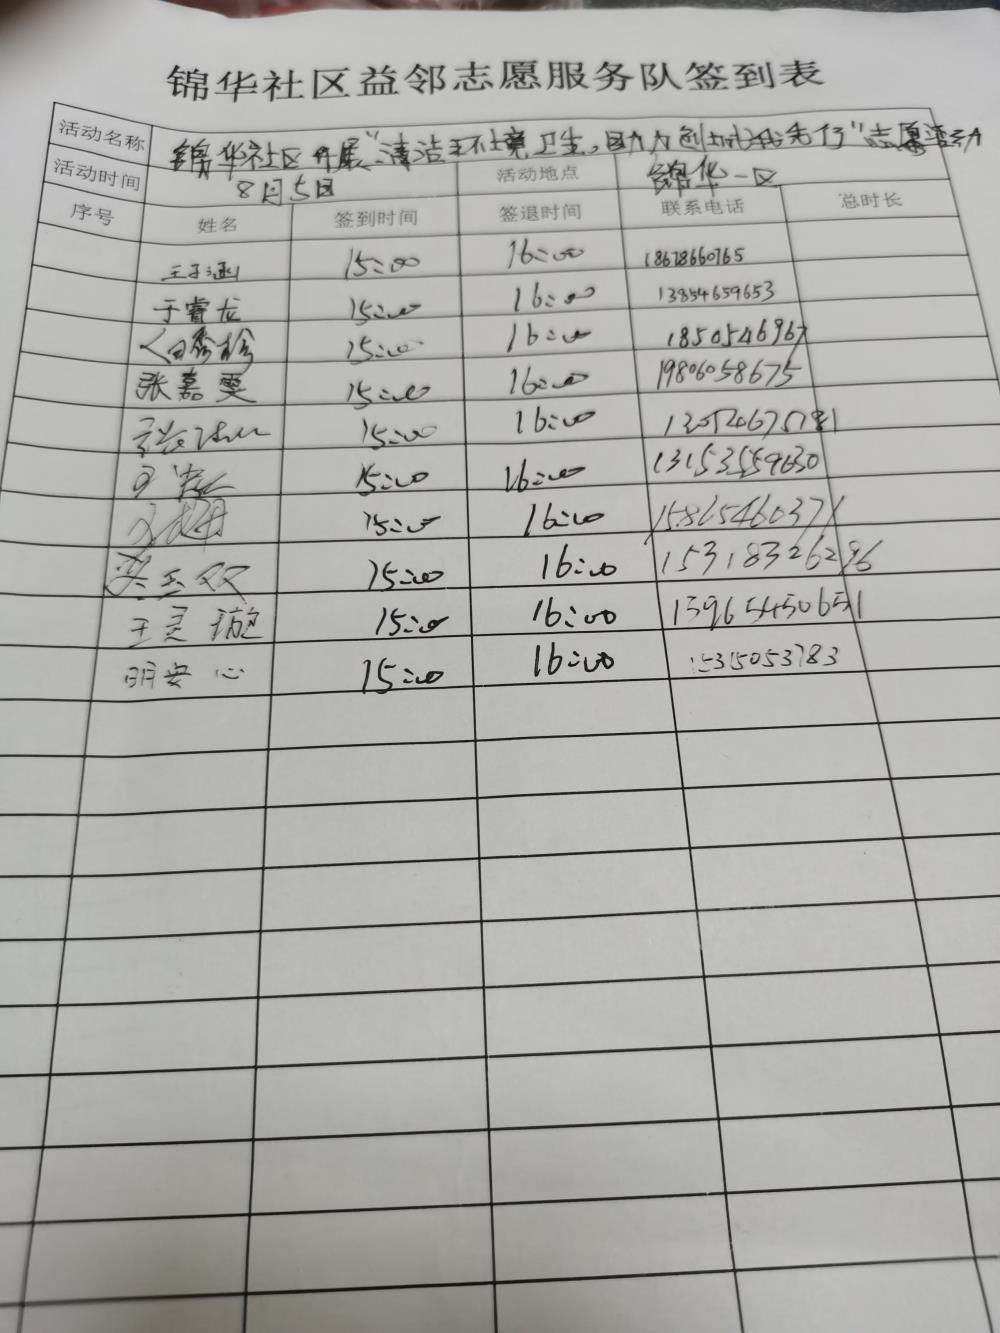 锦华社区益邻志愿服务队签到表
活动名称 锦华社区开展"清洁环境卫生,助力创城我先行"志愿活动
活动时间 8月5日 活动地点 锦华一区
序号 姓名 签到时间 签退时间 联系电话 总时长
15:00 16:00 18678660765
于睿龙 15:00 16:00 13854659653
15:00 16:00
张嘉雯 15:00 16:00 19806058675
15:00 16:00
15:00 16:00 13153559630
15:00 16:00 15865460371
15:00 16:00 15318326296
王灵璇 15:00 16:00 13965450651
明安心 15:00 16:00 15315053783